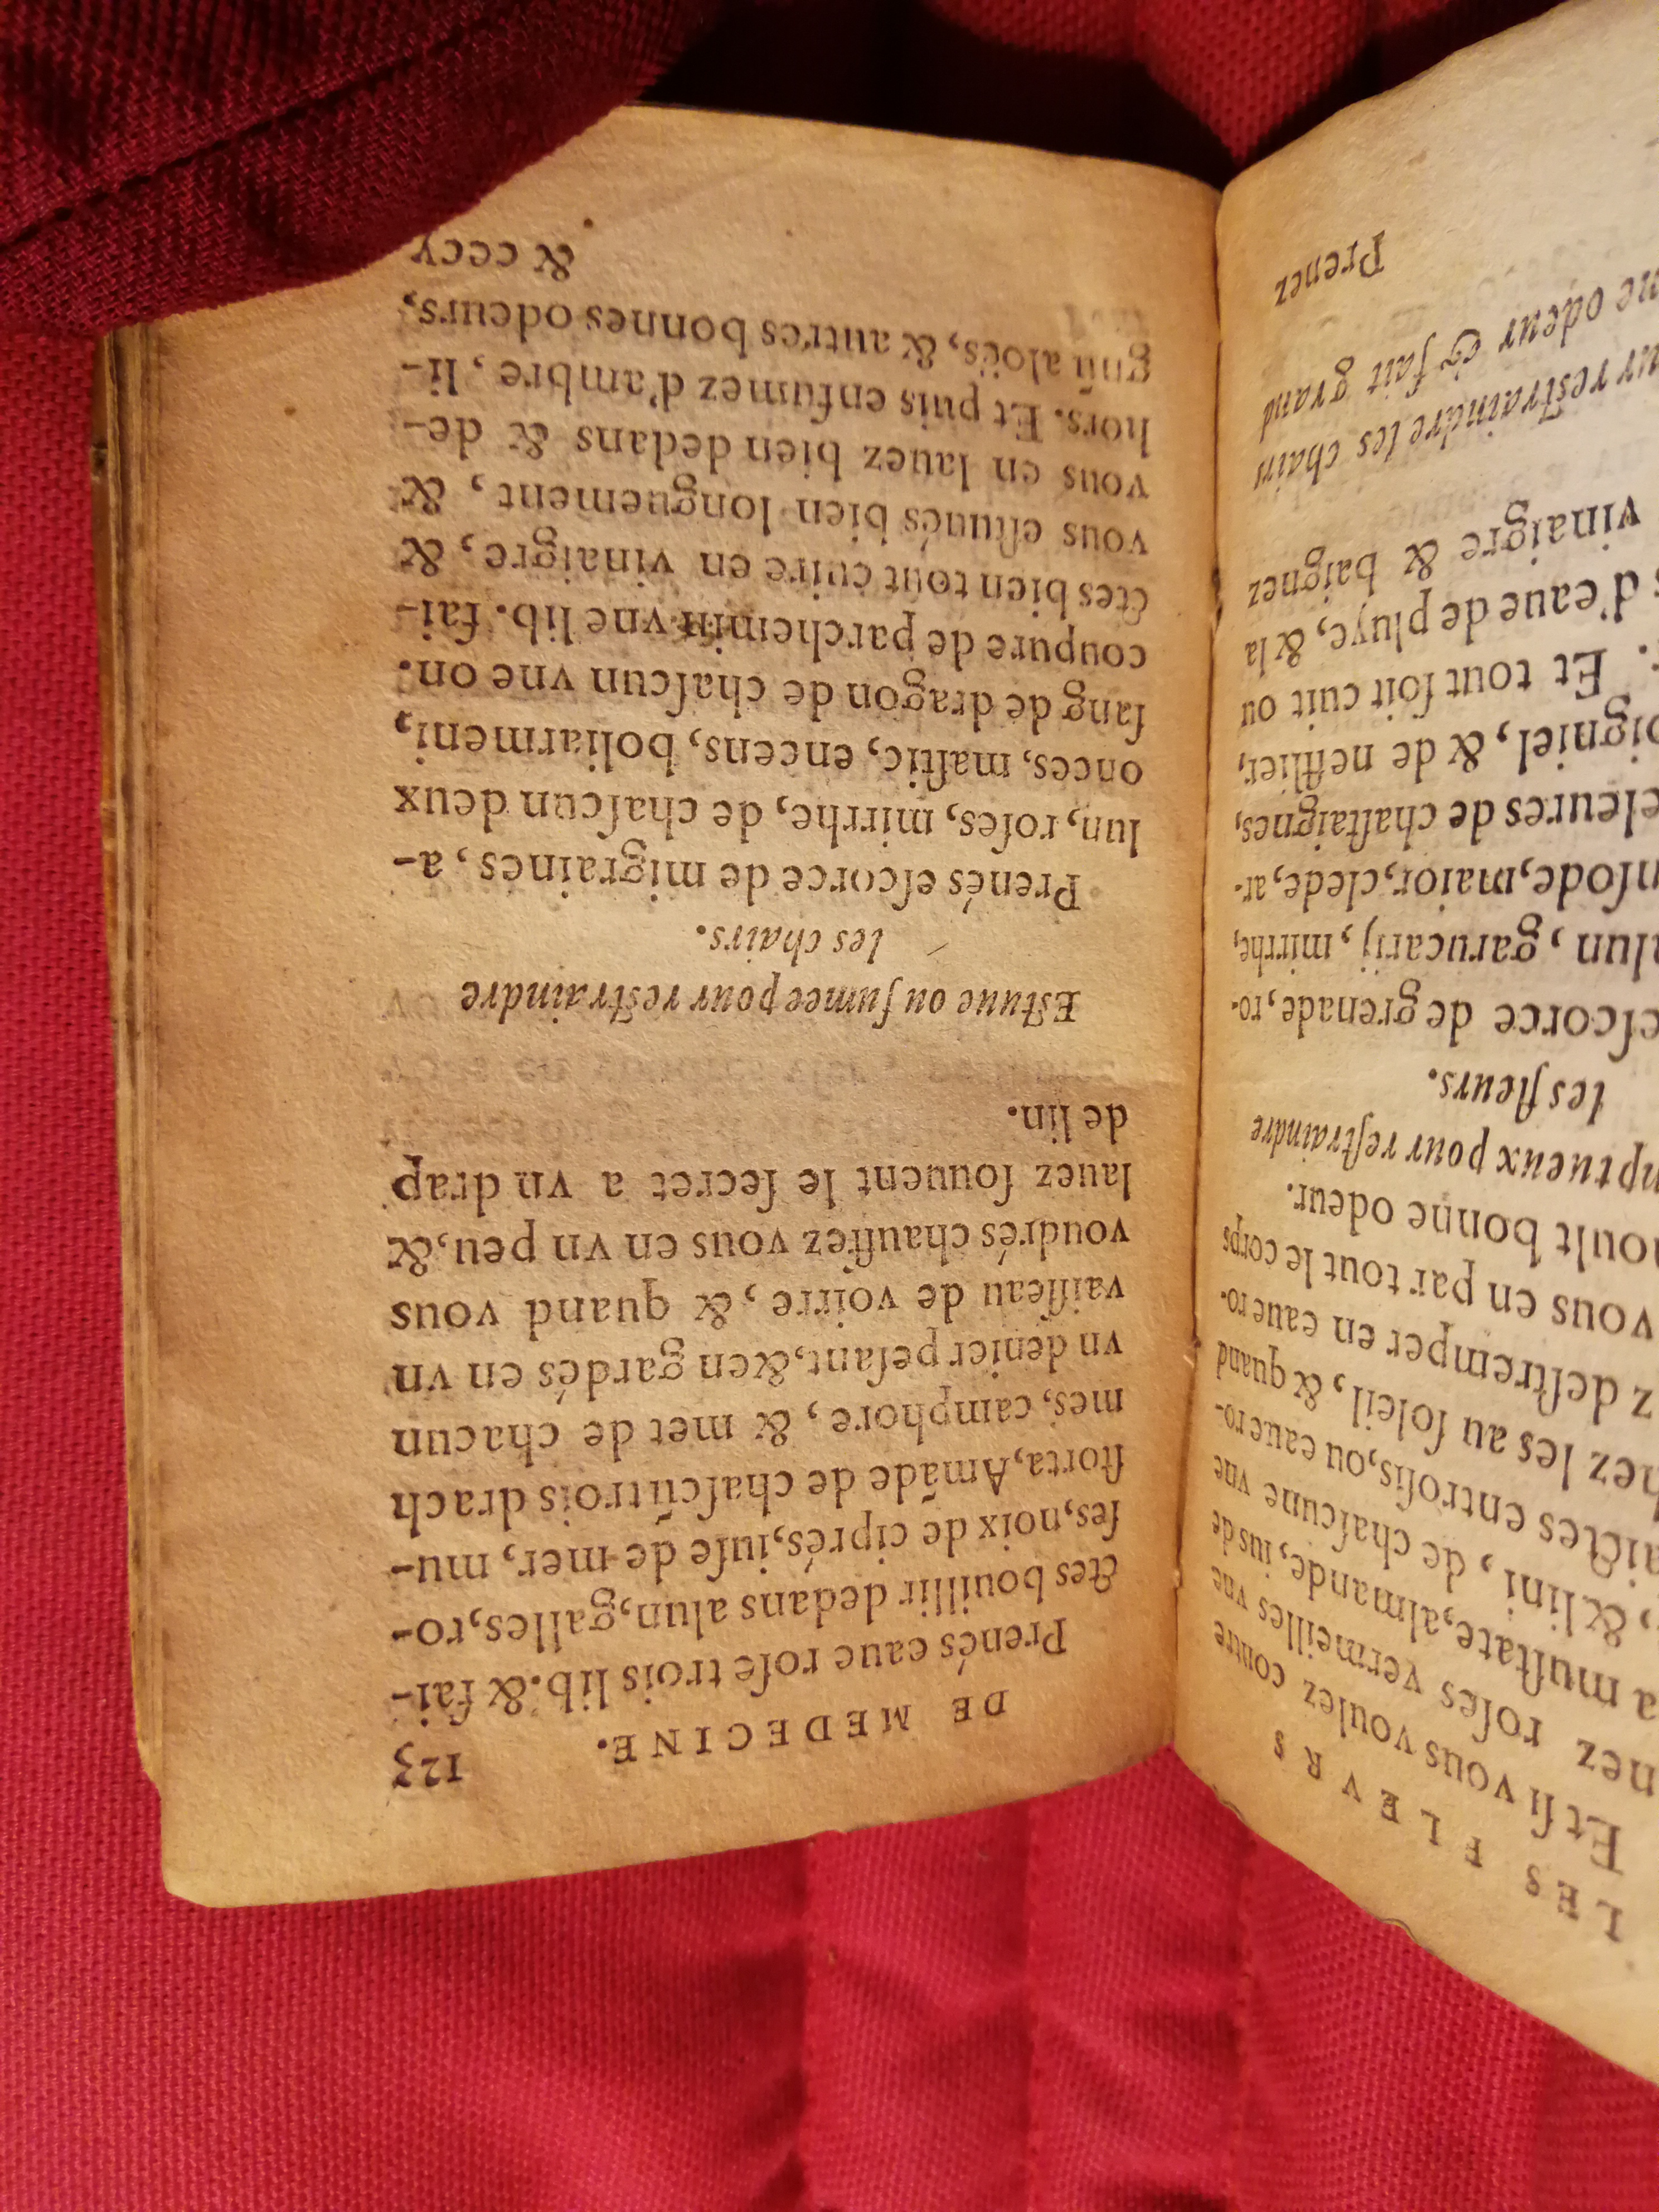 LES FLEVRS
Et ſi vous voulez contre
nez roſes vermeilles vne
a muſtate, almande, ius de
, & lini , de chaſcune vne
aictes entroſis, ou eauero-
hez les au ſoleil, & quand
z deſtremper en eaue ro-
vous en par tout le corps
moult bonne odeur.
mptueux pour reſtraindre
les fleurs.
eſcorce de grenade, ro-
alun, garucarij, mirrhe,
nſode, maior, clede, ar-
eleures de chaſtaignes,
oigniel, & de neſlier,
. Et tout ſoit cuit ou
s d'eaue de pluye, & la
vinaigre & baignez
ur reſtraindre les chairs
ne odeur & fait grand
Prenez
DE MEDECINE. 123
Prenés eaue roſe trois lib. & fai-
ctes bouillir dedans alun, galles, ro-
ſes, noix de ciprés, iuſe de mer, mu-
ſtorta, Amāde de chaſcū trois drach
mes, camphore, & met de chacun
vn denier peſant, & en gardés en vn
vaiſſeau de voirre, & quand vous
voudrés chauffez vous en vn peu, &
lauez ſouuent le ſecret a vn drap
de lin.
Eſtuue ou fumee pour reſtraindre
les chairs.
Prenés eſcorce de migraines, a-
lun, roſes, mirrhe, de chaſcun deux
onces, maſtic, encens, boliarmeni,
ſang de dragon de chaſcun vne on.
coupure de parchemin vne lib. fai-
ctes bien tout cuire en vinaigre, &
vous eſtuués bien longuement, &
vous en lauez bien dedans & de-
hors. Et puis enfumez d'ambre, li-
gnū aloës, & autres bonnes odeurs,
& cecy